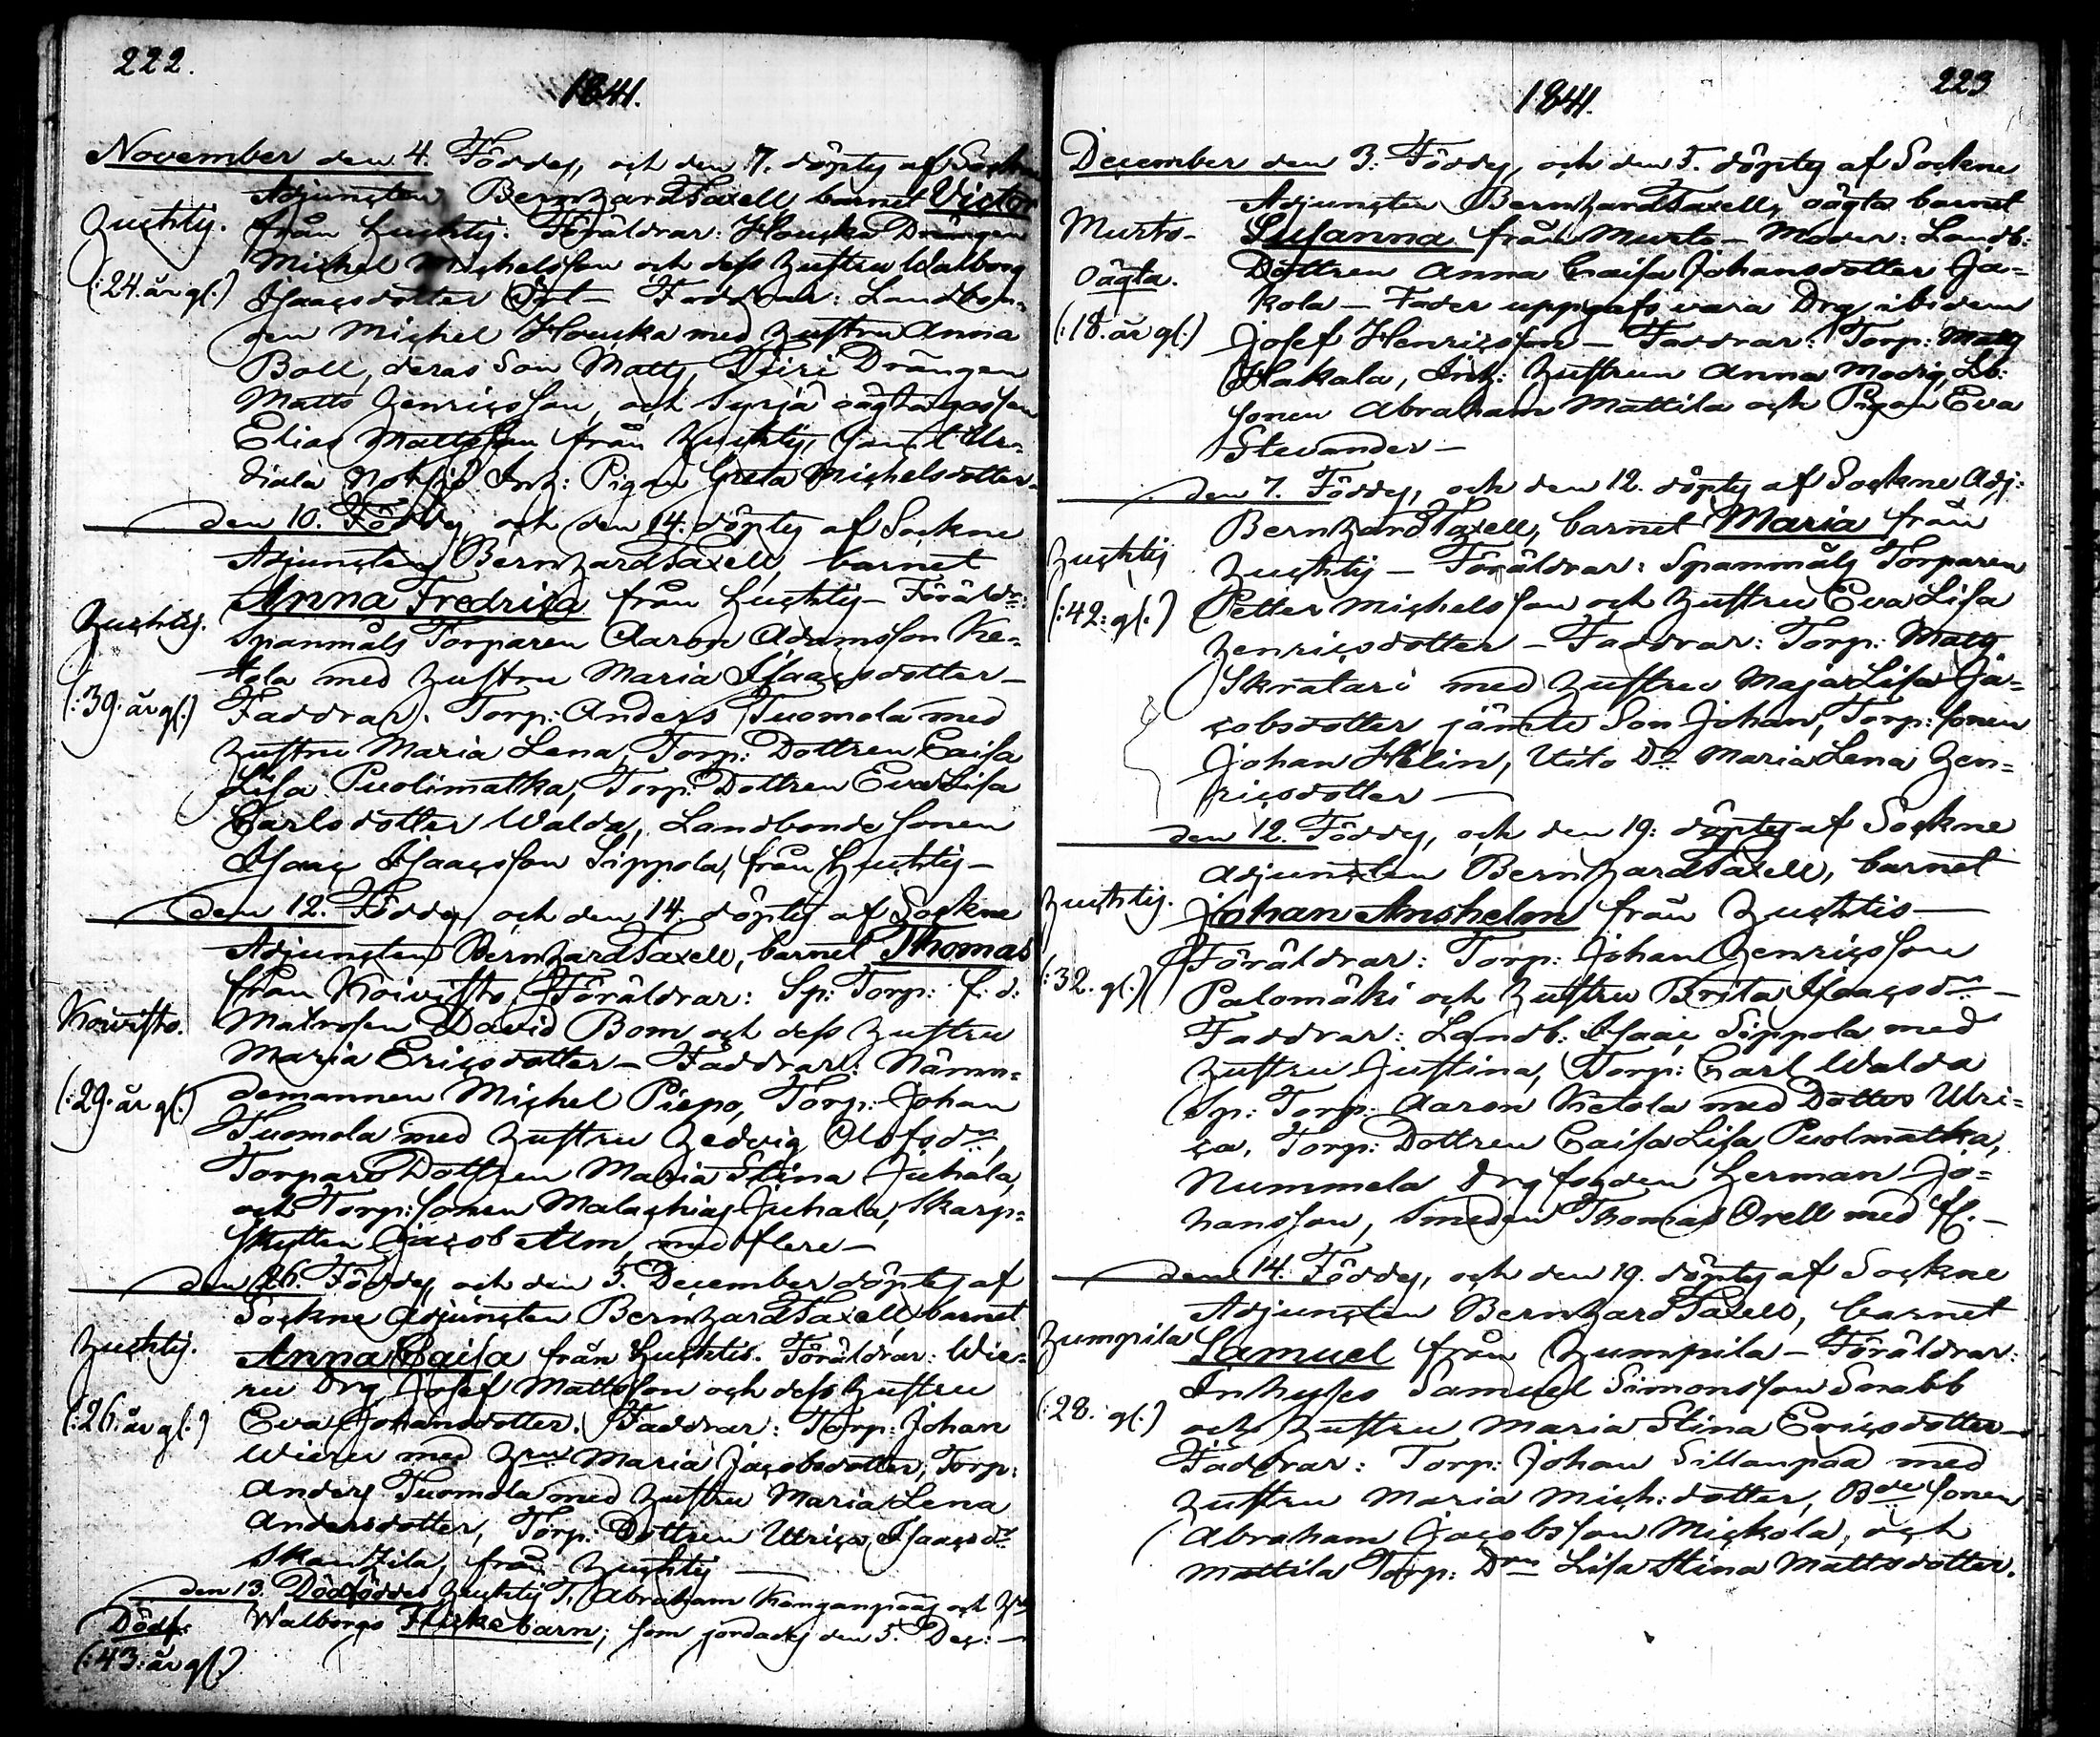 222.
1841.
November den 4. Föddes, och den 7. döptes af Sockne
Adjuncten Bernhard Taxell barnet Victor
Huchtis. från Huchtis. Föräldrar: Houcka Drängen
Michel Michelsson och dess hustru Walborg
(:24. år gl:) Isaacsdotter Faddrar: Landbon-
den Michel Houcka med hustru Anna
Boll, deras Son Matts, Drängen
Matts Henricsson, och Syrjä oägta gossen
Elias Mattsson från Huchtis, samt Ur-
diala Inh: Pigan Greta Michelsdotter
den 10. Föddes, och den 14. döptes af Sockne
Adjuncten Bernhard Taxell, barnet
Anna Fredrica från Huchtis – Föräldr:
Huchtis. Spanmåls Torparen Aaron Adamsson Ke-
tola med hustru Maria Isaacsdotter –
(:39. år gl:) Faddrar. Torp: Anders Tuomola med
hustru Maria Lena, Torp: Dottren Caisa
Lisa Puolimatka, Torp: Dottren Eva Lisa
Carlsdotter Walda, Landbonde sonen
Isaac Isaacsson Sippola, från Huchtis –
den 12. Föddes, och den 14. döptes af Sockne
Adjuncten Bernhard Taxell, barnet Thomas
från Koivisto, Föräldrar: Sp: Torp: f. d:
Koivisto. Matrosen David Bom och dess hustru
Maria Ericsdotter – Faddrar: Nämn-
(:29. år gl:) demannen Michel Piepo, Torp: Johan
Tuomola med hustru Hedvig Olofsdr,
Torpare Dottren Maria Stina Juhala,
och Torp: sonen Malachias Juhala, Skarp-
skytten Jacob Alm, med flere –
den 26. Föddes, och den 5. December döptes af
Sockne Adjuncten Bernhard Taxell, barnet
Huchtis. Anna Caisa från Huchtis. Föräldrar: Wie-
ru Drg Josef Mattsson och dess hustru
(:26. år gl:) Eva Johansdotter. Faddrar: Torp: Johan
Wieru med hru Maria Jacobsdotter, Torp:
Anders Tuomola med hustru Maria Lena
Andersdotter, Torp: Dottren Ulrica Isaacsdr
från Huchtis –
den 13. Dödföddes Huchtis T. Abraham Kanganpääs och Hus
Dödf: Walborgs Flickebarn; som jordades den 5. Dec: –
(:43: år gl:)
223
1841.
December den 3. Föddes, och den 5. döptes af Sockne
Adjuncten Bernhard Taxell, oägta barnet
Murto – Susanna från Murto – Moder: Landb:
Oägta. Dottren Anna Caisa Johansdotter Ja-
kola – Fader uppgafs vara Drg ibidem
(:18. år gl:) Josef Henricsson – Faddrar: Torp: Matts
Hakala, Inh: hustrun Anna Modig, Lb:
sonen Abraham Mattila och Pigan Eva
Stevander –
den 7. Föddes, och den 12. döptes af Sockne Adj:
Bernhard Taxell, barnet Maria från
Huchtis Huchtis – Föräldrar: Spanmåls Torparen
(:42: gl:) Petter Michelsson och hustru Eva Lisa
Henricsdotter – Faddrar: Torp: Matts
Skratari med hustru Maja Lisa Ja-
cobsdotter jämte Son Johan, Torp: sonen
Johan Helin, Uito Dr Maria Lena Hen-
ricsdotter –
den 12. Föddes, och den 19: döptes af Sockne
Adjuncten Bernhard Taxell, barnet
Huchtis. Johan Anshelm från Huchtis –
Föräldrar: Torp: Johan Henricsson
(:32. gl:) Palomäki och hustru Brita Isaacsdr –
Faddrar: Landb: Isaac Sippola med
hustru Justina, Torp: Carl Walda
Sp: Torp: Aaron Ketola med Dotter Ulri-
ca, Torp: Dottren Caisa Lisa Puolmatka,
Nummela Drg fogden Herman Jo-
hansson, Smeden Thomas Orell med fl. –
den 14. Föddes, och den 19. döptes af Sockne
Adjuncten Bernhard Taxell, barnet
Humpila Samuel från Humpila – Föräldrar:
Inhyses Samuel Simonsson Snabb
(:28. gl:) och hustru Maria Stina Ericsdotter –
Faddrar: Torp: Johan Sillanpää med
hustru Maria Mich:dotter, Bde sonen
Abraham Jacobsson Mickola, och
Mattila Torp: Drn Lisa Stina Mattsdotter.